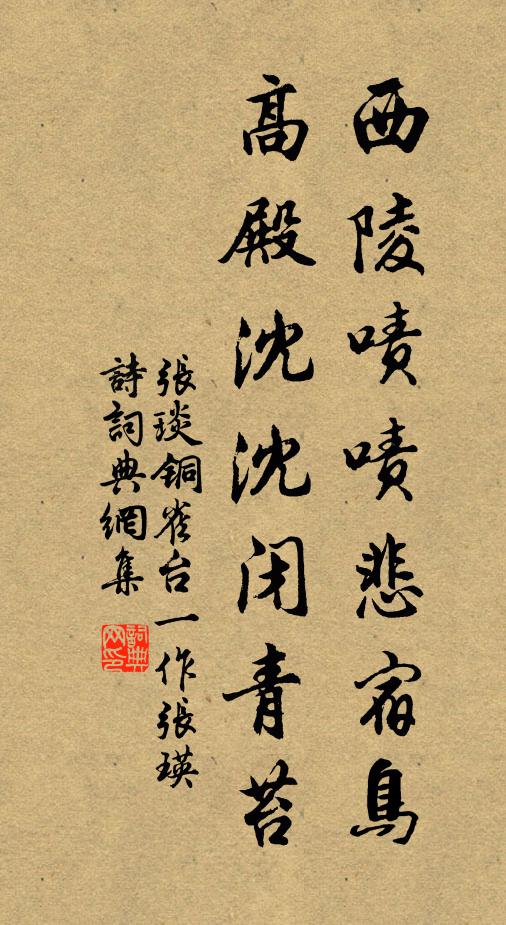 西陵嘖嘖悲宿鳥
高殿沈沈閉青苔
張琰銅雀台一作張瑛
詩詞典網集
詞典網印